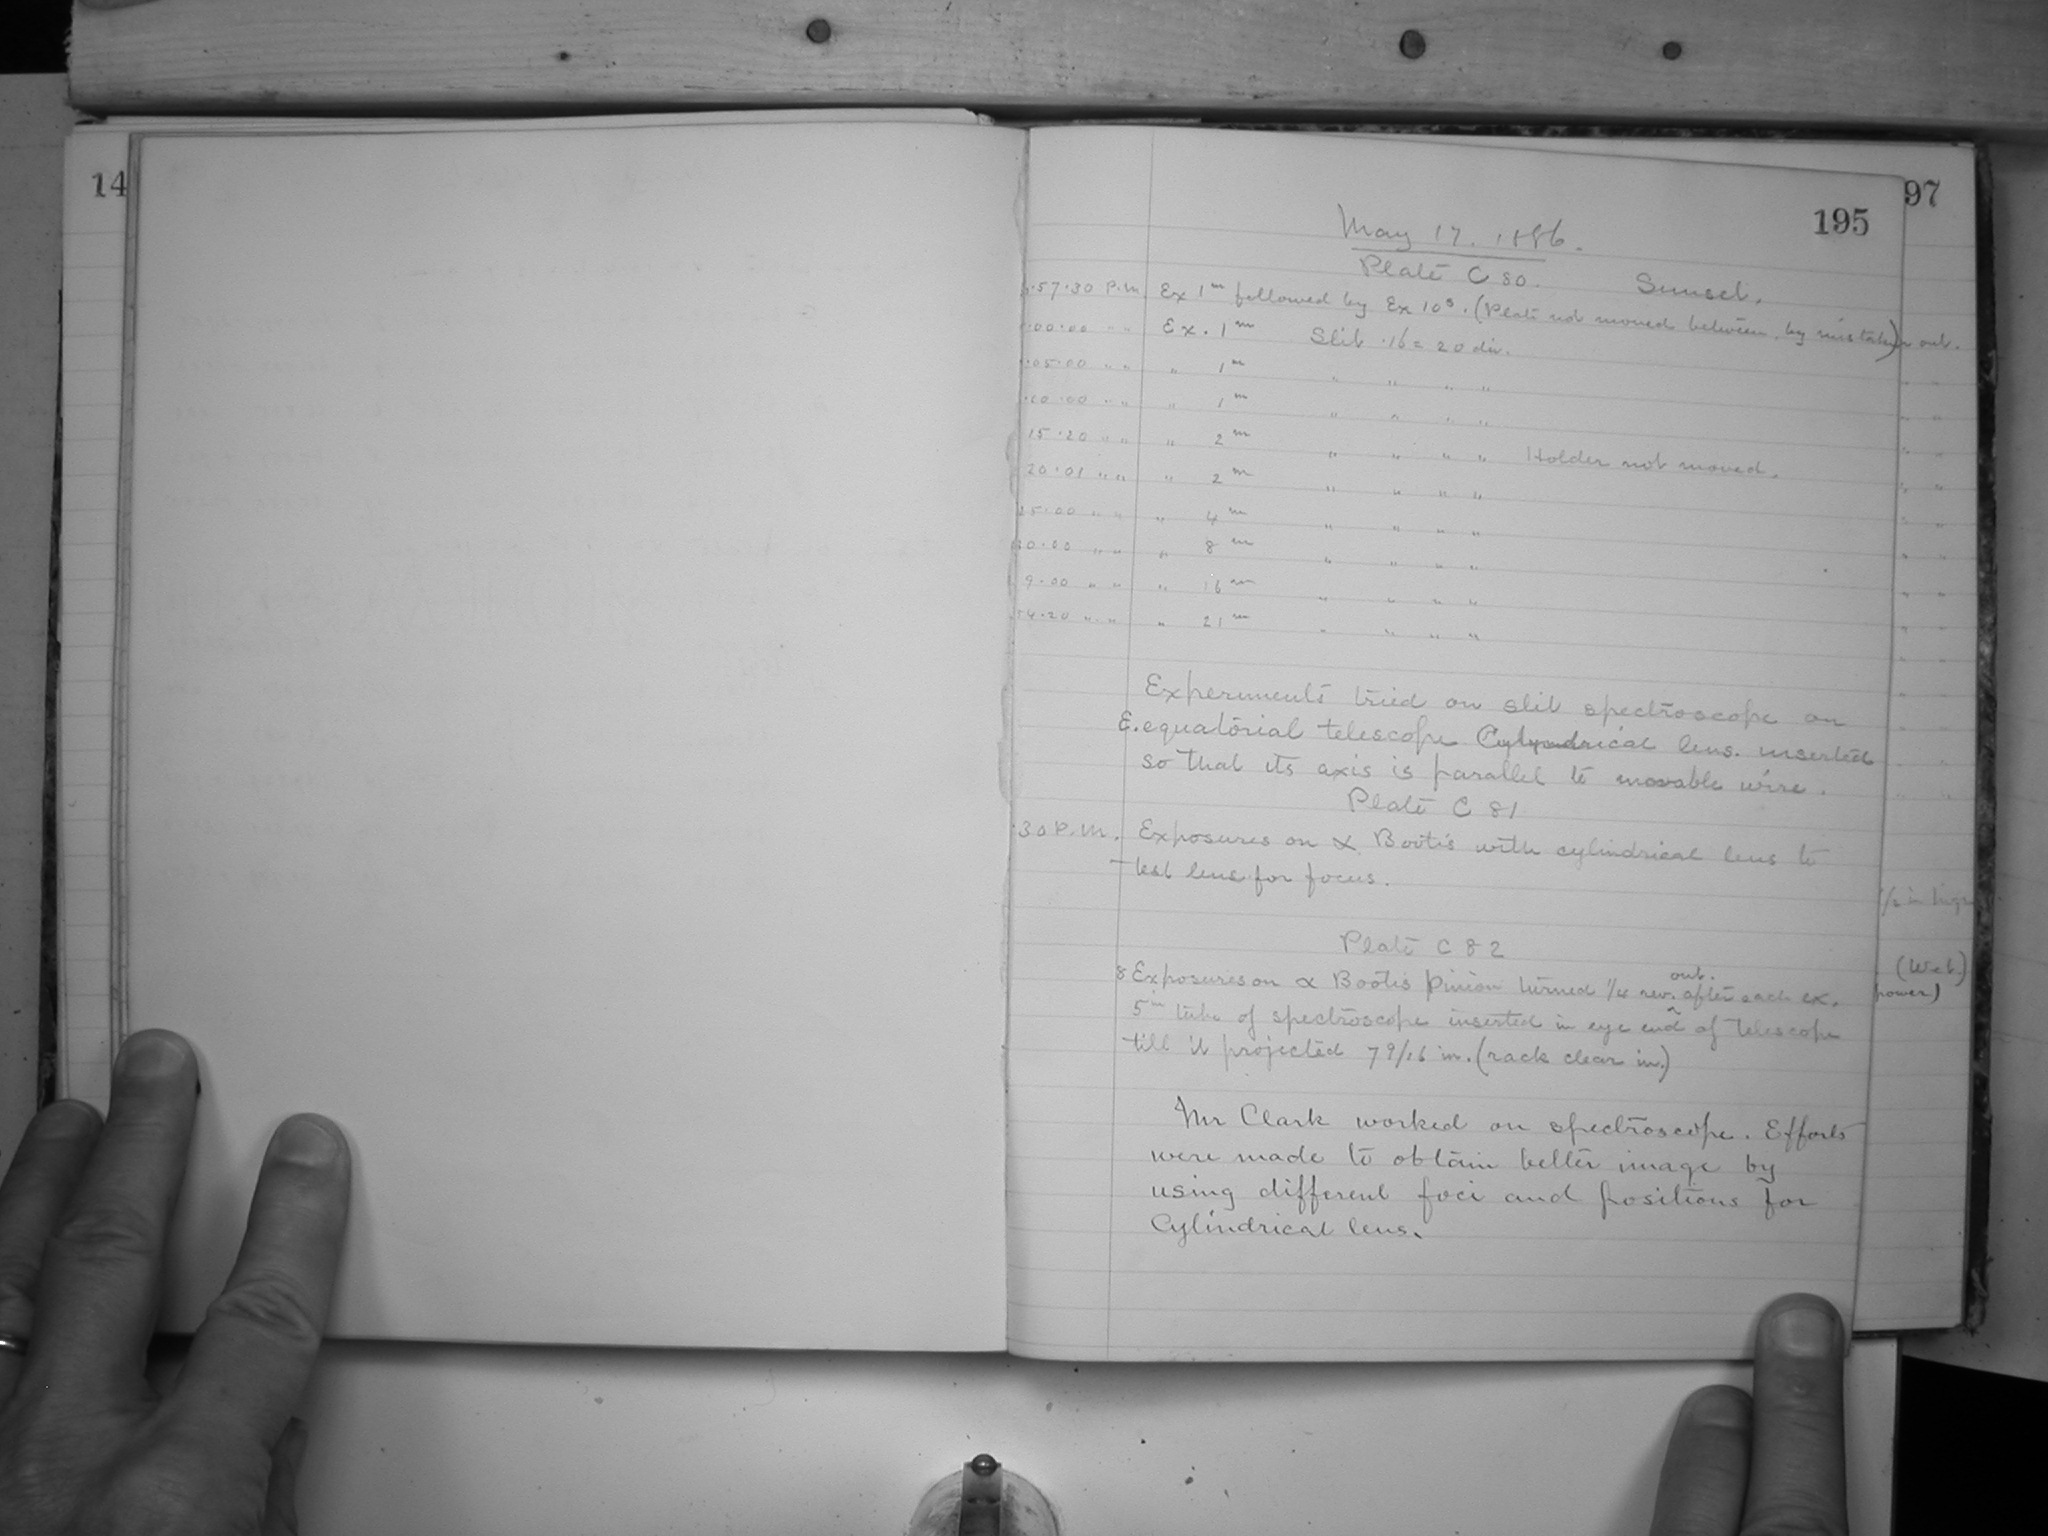 14
97
195
May 17. 1886.
Plate C 80. Sunset.
.57.30 P.M. Ex 1m followed by Ex 10s. (Plate not moved between, by mistake)
.00.00 " " Ex. 1m Slit .16 = 20 div.
.05.00 " " " 1m " " " "
.10.00 " " " 1m " " " "
15.20 " " " 2m " " " " Holder not moved.
20.01 " " " 2m " " " "
25.00 " " " 4m " " " "
30.00 " " " 8m " " " "
9.00 " " " 16m " " " "
54.20 " " " 21m " " " "
Experiments tried on slit spectroscope on
E. equatorial telescope Cylindrical lens inserted
so that its axis is parallel to movable wire.
Plate C 81
.30 P.M. Exposures on α Bootis with cylindrical lens to
test lens for focus.
Plate C 82
8 Exposures on α Bootis Pinion turned 1/4 rev. out. after each ex.
5in tube of spectroscope inserted in eye end of telescope
till it projected 7 9/16 in. (rack clear in.)
Mr Clark worked on spectroscope. Efforts
were made to obtain better image by
using different foci and positions for
Cylindrical lens.
out.
(Wet.)
power)